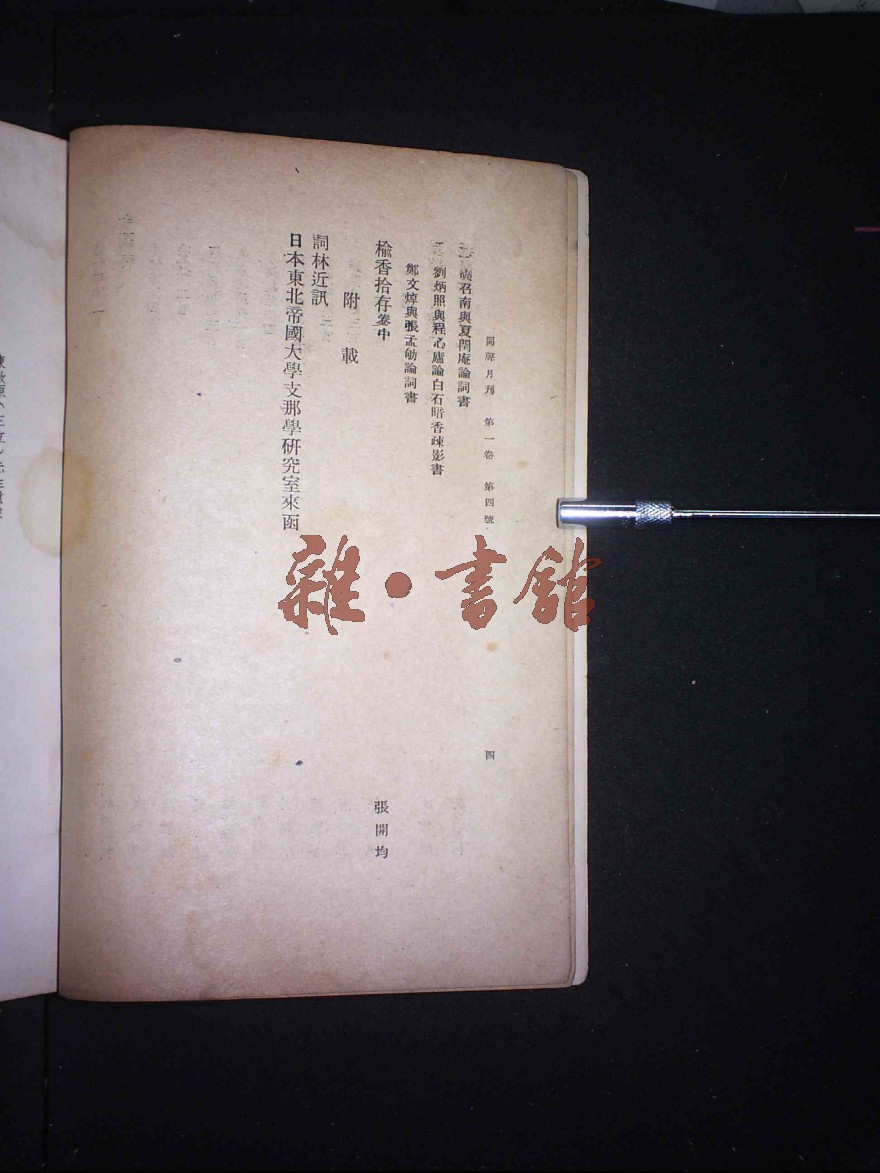 同聲月刊 第一卷 第四號 四
召南與夏閏庵論詞書
劉炳照與程心廬論白石暗香疎影書
鄭文焯與張孟劬論詞書
楡香拾存卷中 張開均
附載
詞林近訊
日本東北帝國大學支那學研究室來函
雜·書館